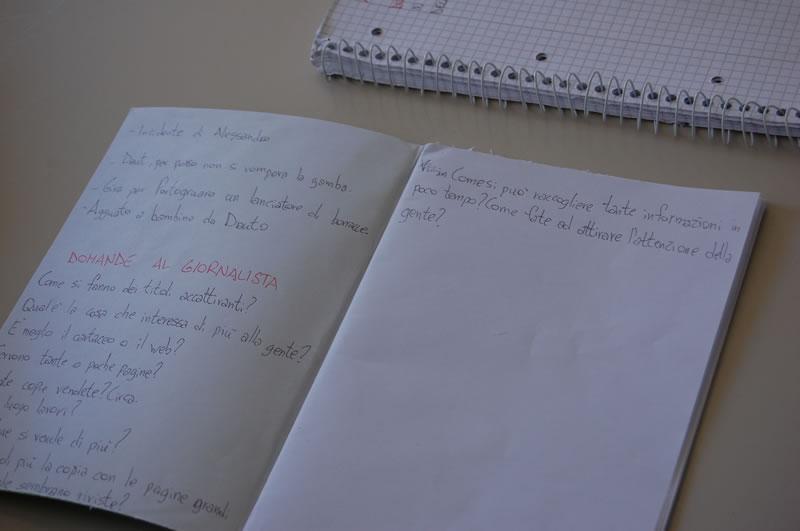 - Incidente di Alessandro
- Daut, per poco non si rompeva la gamba.
- Gira per Portogruaro un lanciatore di borracce.
- Agguato a bambino da Dauto
DOMANDE AL GIORNALISTA
Come si fanno dei titoli accattivanti?
Qual'è la cosa che interessa di più alla gente?
È meglio il cartaceo o il web?
Servono tante o poche pagine?
copie vendete? Circa.
luogo lavori?
si vende di più?
di più la copia con le pagine grandi
sembrano riviste?
Come si può raccogliere tante informazioni in
poco tempo? Come fate ad attirare l'attenzione della
gente?